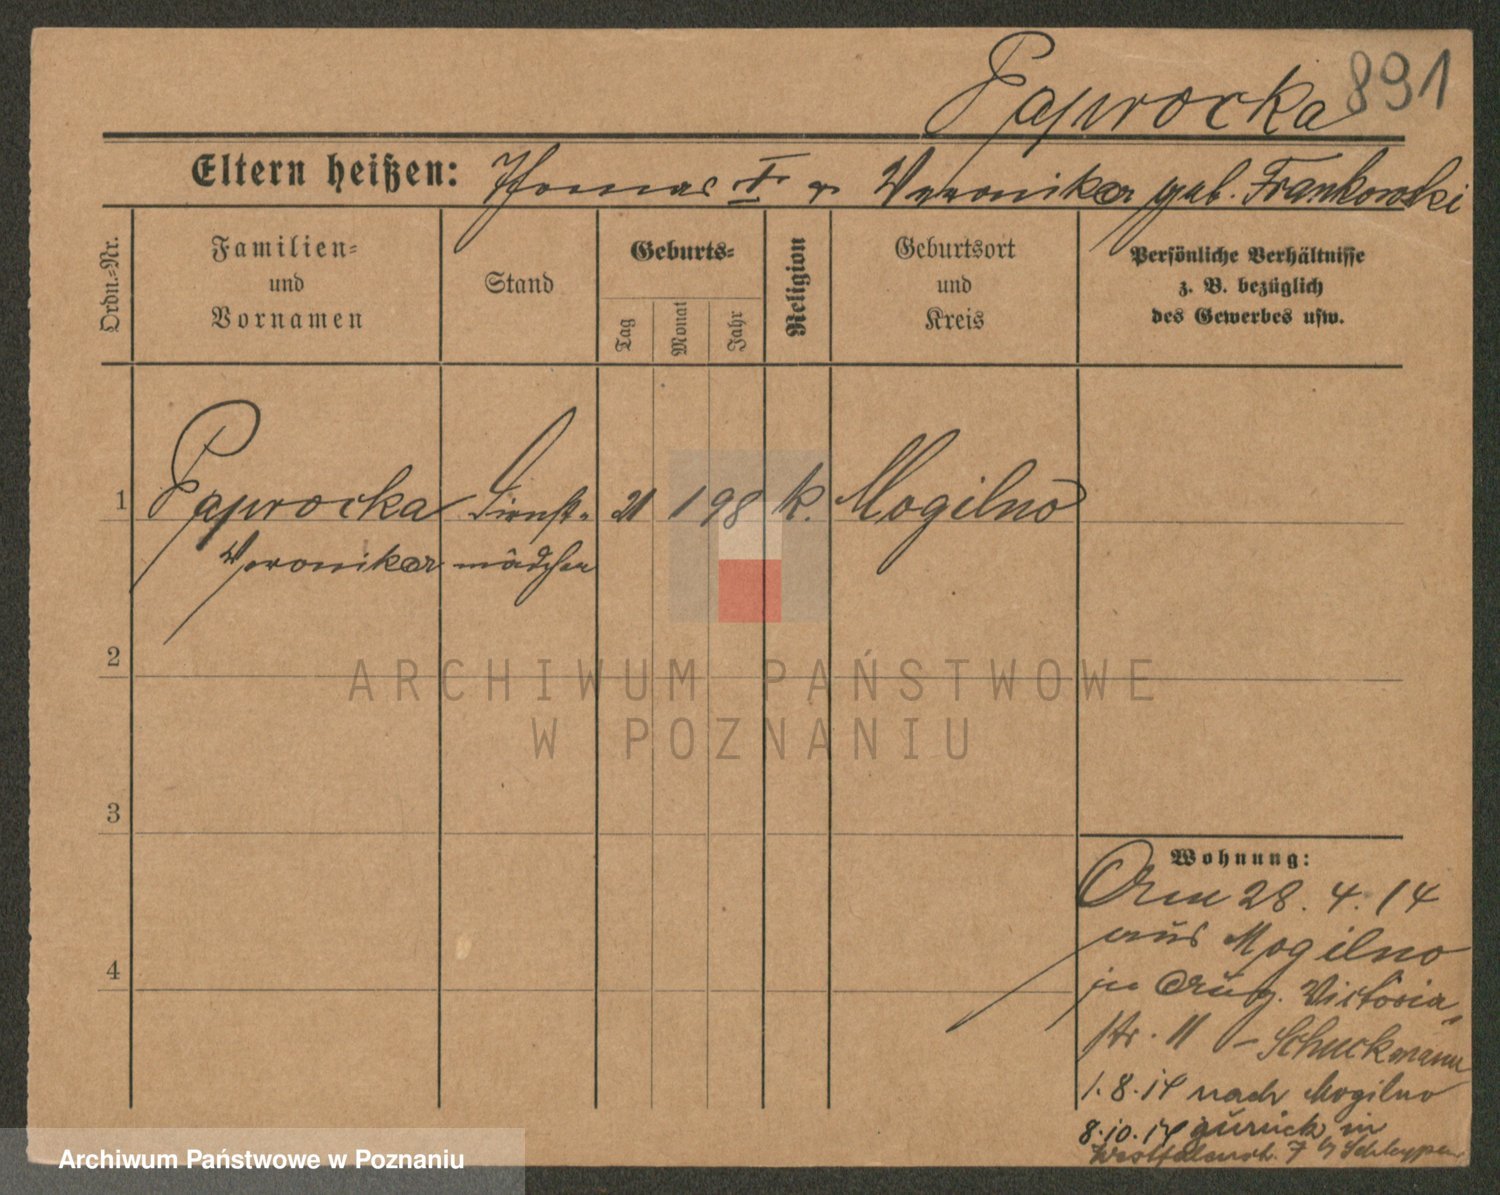 Paprocka 891
Eltern heißen: Thomas † u Veronika geb. Frankowski
Ordn.=Nr.
Familien=
und
Vornamen
Stand
Geburts=
Tag
Monat
Jahr
Religion
Geburtsort
und
Kreis
Persönliche Verhältnisse
z. B. bezüglich
des Gewerbes usw.
1 Paprocka Dienst= 21 1 98 k. Mogilno
Veronika mädchen
2
3
4
ARCHIWUM PAŃSTWOWE
W POZNANIU
Wohnung:
28. 4. 14
aus Mogilno
in Victoria=
str. 11 - Schuckmann
1. 8. 14 nach Mogilno
8. 10. 14 zurück in
Westfalenstr. 7
Archiwum Państwowe w Poznaniu